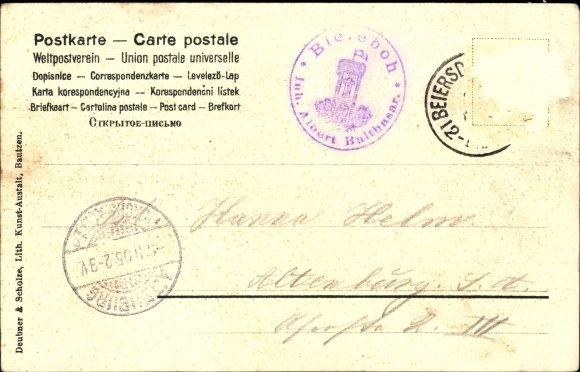 Postkarte — Carte postale
Weltpostverein — Union postale universelle
Dopisnice — Correspondenzkarte — Levelező-Lap
Karta korespondencyjna — Korespondenční lístek
Briefkaart — Cartolina postale — Post card — Brefkort
Открытое-письмо
Bieleboh
Inh. Albert Balthasar.
BEIERSD
Hanna Helm.
Altenburg. S. A.
III
Deubner & Scholze, Lith. Kunst-Anstalt, Bautzen.